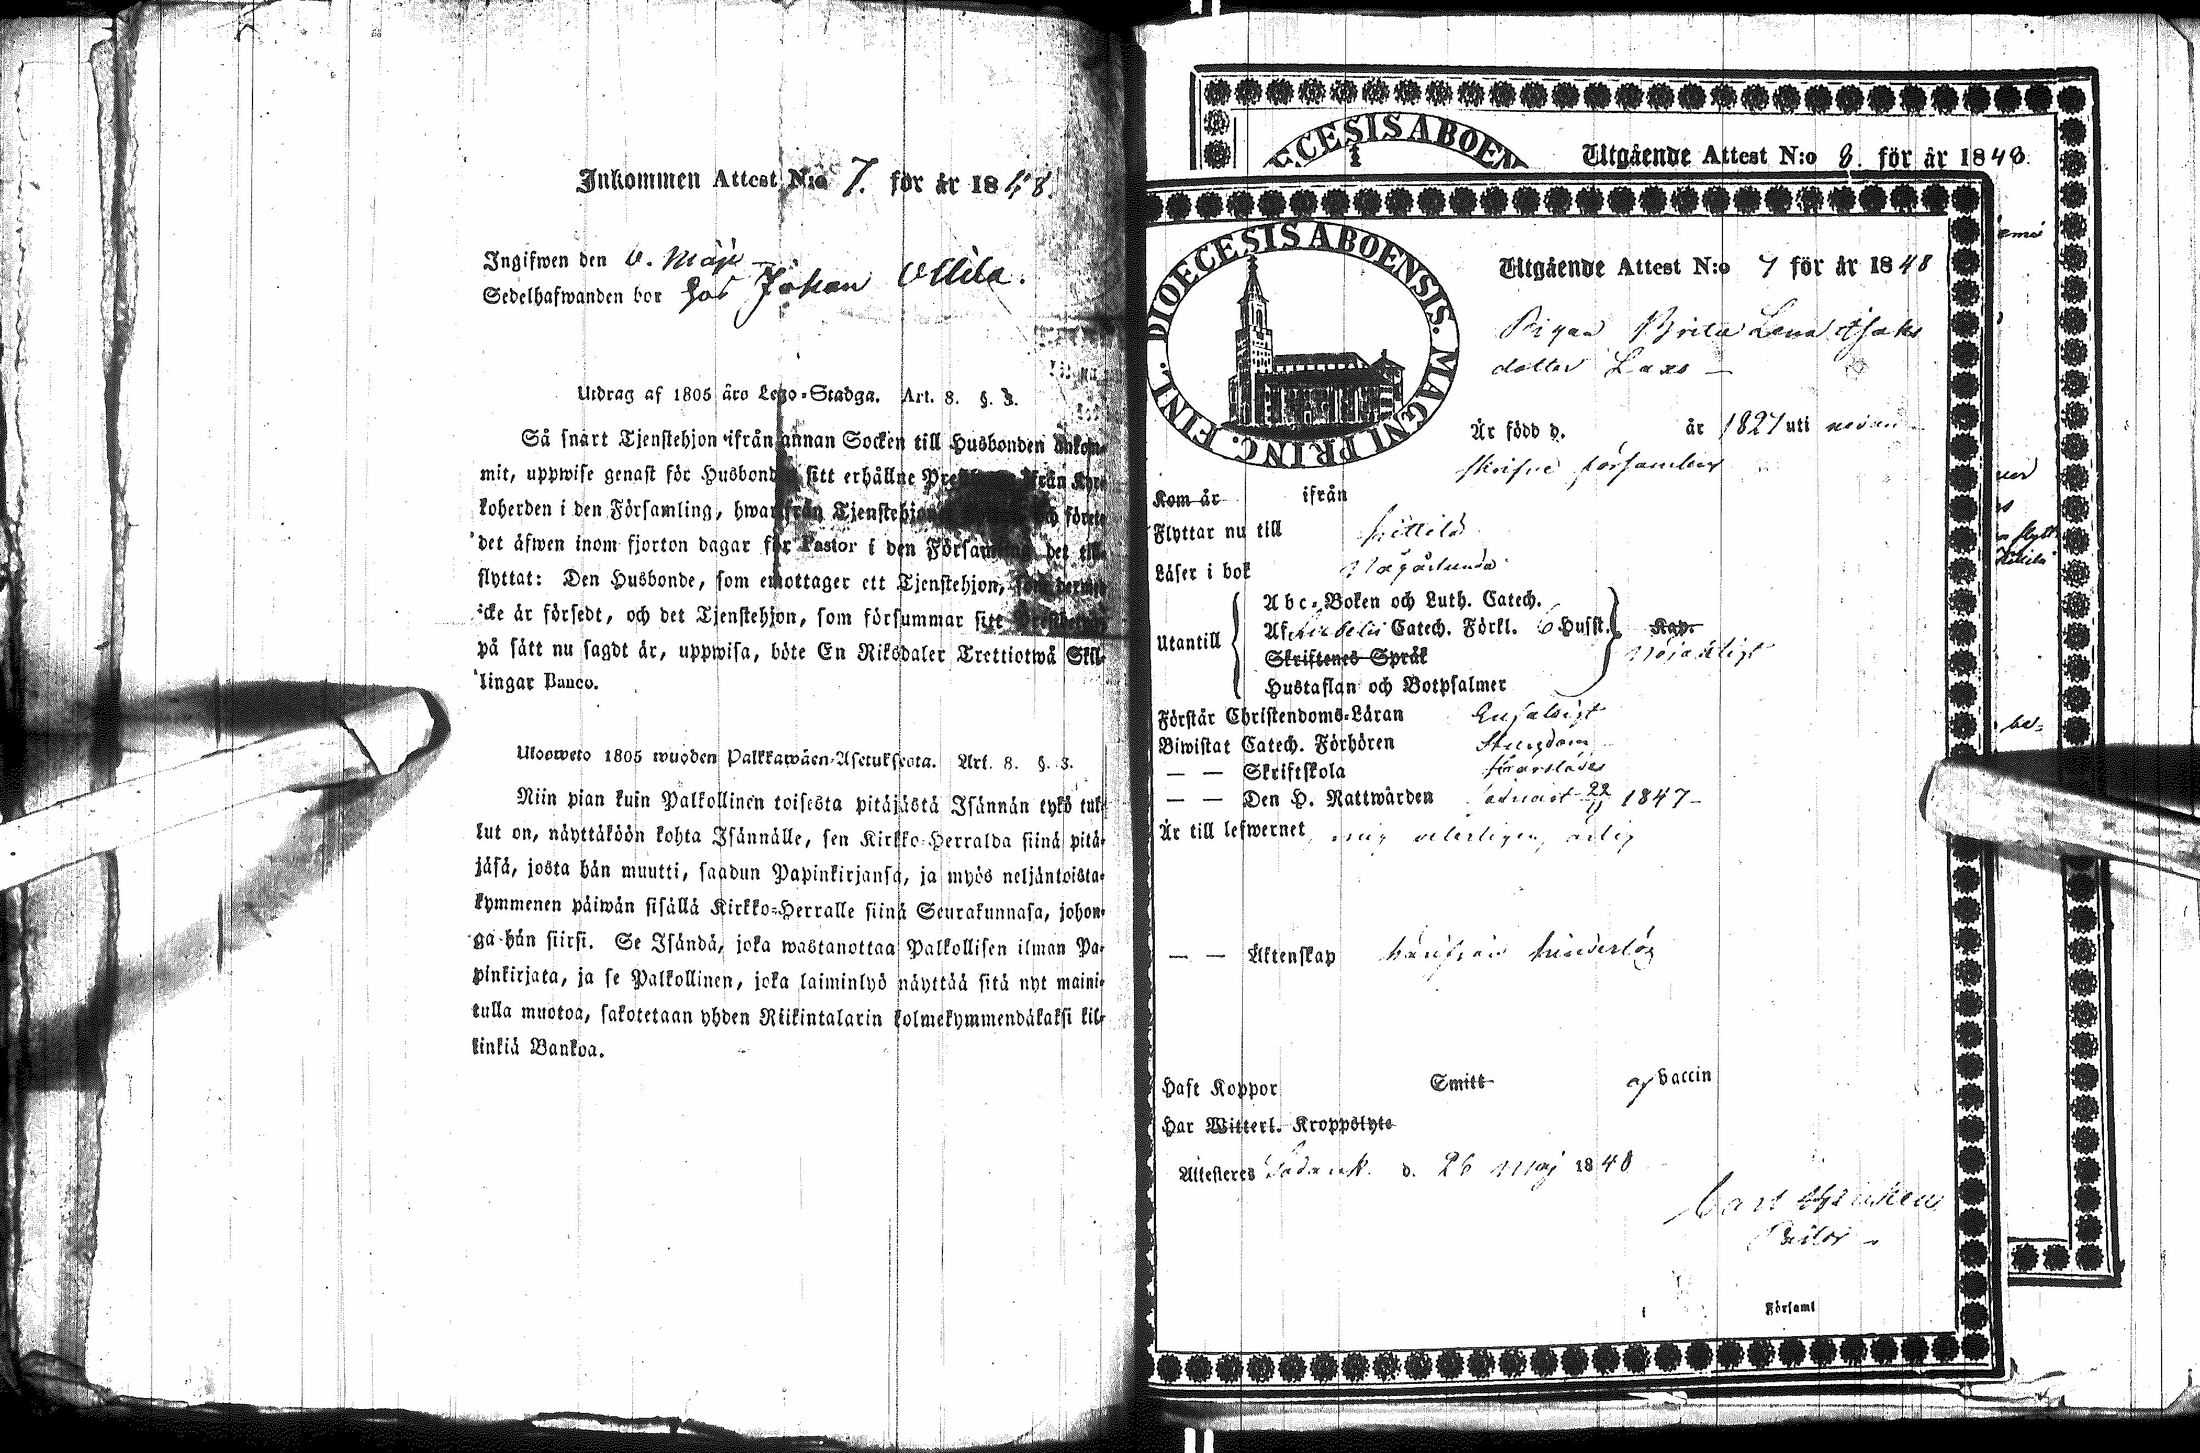 Inkommen Attest N:o 7. för år 1848.
Ingifwen den
Sedelhafwanden bor hos Johan Ollila.
Utdrag af 1805 års Lego-Stadga. Art. 8. §. 3.
Så snart Tjenstehjon ifrån annan Socken till Husbonden ankom-
mit, uppwise genast för Husbonden sitt erhållne ifrån Kyr-
koherden i den Församling, hwarifrån och förete
det äfwen inom fjorton dagar för Pastor i den Församling det till-
flyttat: Den Husbonde, som emottager ett Tjenstehjon, som dermed
icke är försedt, och det Tjenstehjon, som försummar sitt
på sätt nu sagdt är, uppwisa, böte En Riksdaler Trettiotwå Skil-
lingar Banco.
Ulosweto 1805 wuoden Palkkawäen-Asetuksesta. Art. 8. §. 3.
Niin pian kuin Palkollinen toisesta pitäjästä Isännän tykö tul-
lut on, näyttäköön kohta Isännälle, sen Kirkko-Herralda siinä pitä-
jäsä, josta hän muutti, saadun Papinkirjansa, ja myös neljäntoista-
kymmenen päiwän sisällä Kirkko-Herralle siinä Seurakunnasa, johon-
ga hän siirsi. Se Isändä, joka wastanottaa Palkollisen ilman Pa-
pinkirjata, ja se Palkollinen, joka laiminlyö näyttää sitä nyt maini-
tulla muotoa, sakotetaan yhden Riikintalarin kolmekymmendäkaksi kil-
linkiä Bankoa.
CESIS ABOEN
Utgående Attest N:o 8. för år 1848.
DIOECESIS ABOENSIS. MAGNI PRINC. FINL.
Utgående Attest N:o 7 för år 1848
Pigan Brita Lena Isaks
dotter Laxo
Är född d. år 1827 uti nedan
skrifne församling
Kom år ifrån
Flyttar nu till Kittilä
Läser i bok Någorlunda
Utantill
Abc-Boken och Luth. Catech.
Af Catech. Förkl. 6 Husst. Kap.
Skriftenes Språk
Hustaflan och Botpsalmer
Förstår Christendoms-Läran Enfaldigt
Biwistat Catech. Förhören
— — Skriftskola
— — Den H. Nattwarden 22/11 1847
Är till lefwernet mig veterligen, ärlig
— — Äktenskap hinderlös
Haft Koppor Smitt af vaccin
Har Witterl. Kroppslyte
Attesteras d. 26 Maj 1848
Carl
Församl